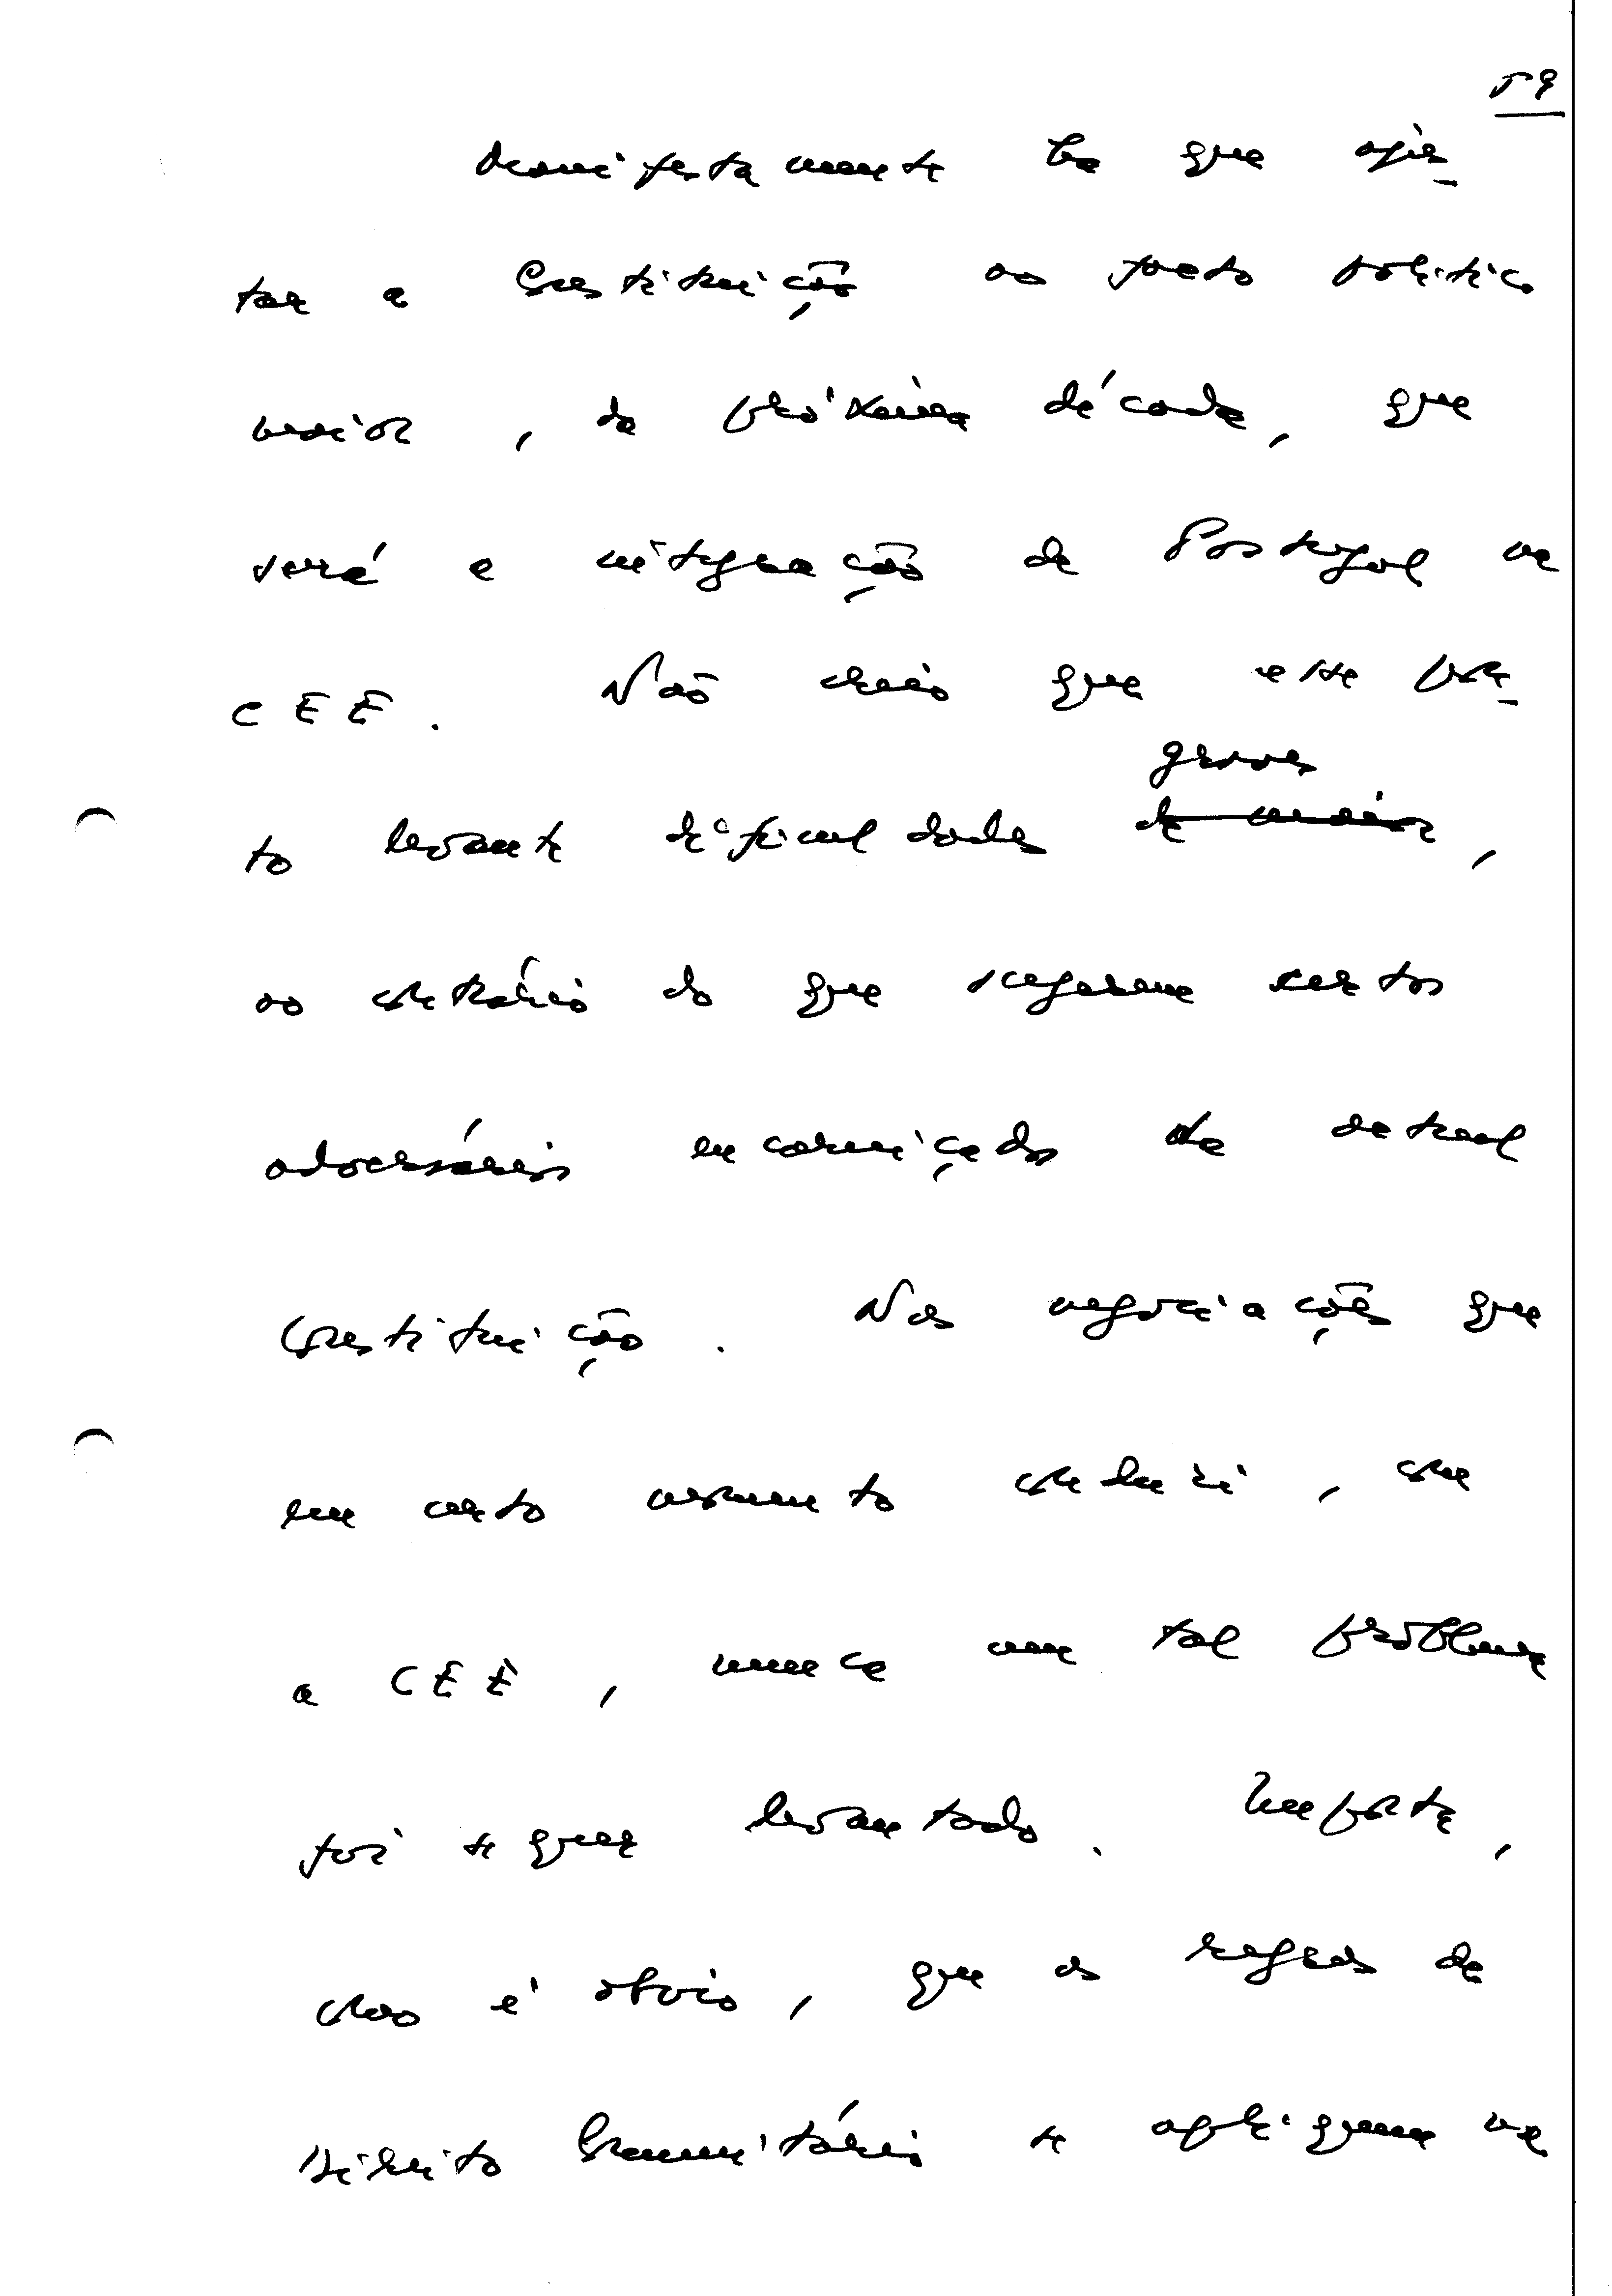 59
Manifestamente há que ajus-
tar a Constituição ao facto político
maior, da próxima década, que
será a integração de Portugal na
CEE. Não creio que este pon-
graves
to levante dificuldades de maior,
ao contrário do que sugerem certos
adversários encarniçados da actual
Constituição. Nas negociações que
em certo momento conduzi, com
a CEE, nunca um tal problema
foi sequer levantado. Importa,
como é óbvio, que as regras de
Direito Comunitário se apliquem na